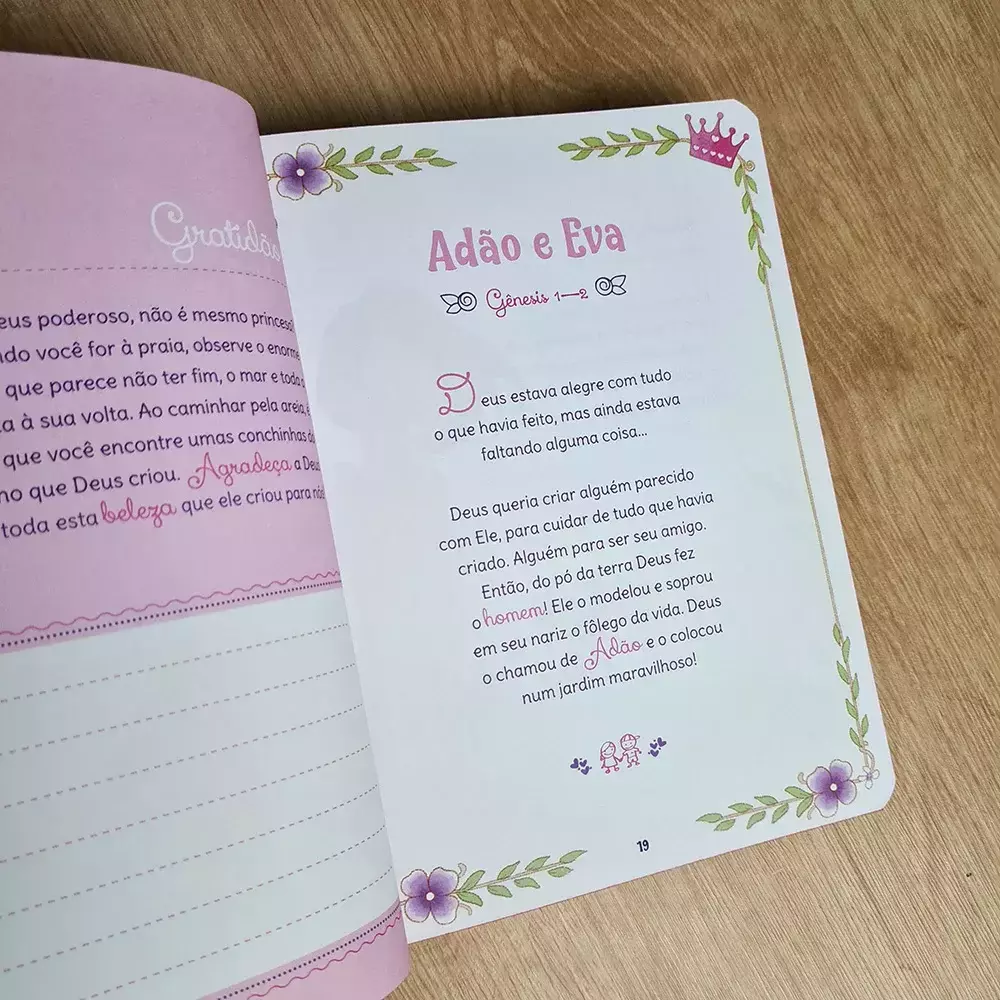 Gratidão
poderoso, não é mesmo princesa
você for à praia, observe o enorme
que parece não ter fim, o mar e toda
à sua volta. Ao caminhar pela areia,
que você encontre umas conchinhas
que Deus criou. Agradeça a Deus
toda esta beleza que ele criou para nós
Adão e Eva
Gênesis 1—2
Deus estava alegre com tudo
o que havia feito, mas ainda estava
faltando alguma coisa...
Deus queria criar alguém parecido
com Ele, para cuidar de tudo que havia
criado. Alguém para ser seu amigo.
Então, do pó da terra Deus fez
o homem! Ele o modelou e soprou
em seu nariz o fôlego da vida. Deus
o chamou de Adão e o colocou
num jardim maravilhoso!
19